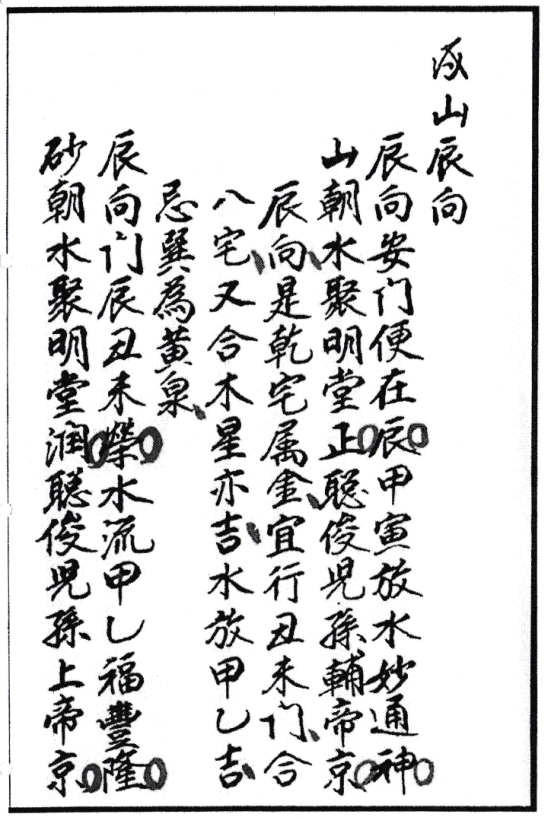 戌山辰向
辰向安门便在辰甲寅放水妙通神
山朝水聚明堂正聪俊児孫輔帝京
辰向是乾宅属金宜行丑未门合
八宅又合木星亦吉水放甲乙吉
忌巽為黄泉
辰向门辰丑未榮水流甲乙福豐隆
砂朝水聚明堂润聪俊児孫上帝京